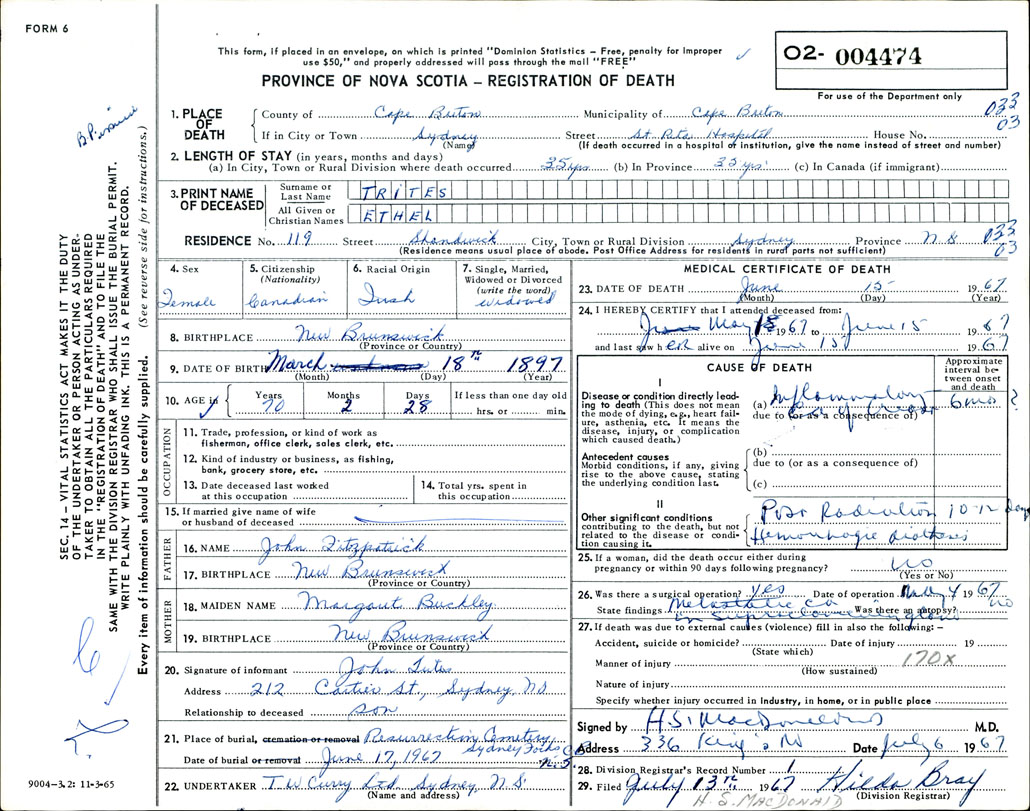 FORM 6
This form, if placed in an envelope, on which is printed "Dominion Statistics – Free, penalty for improper
use $50," and properly addressed will pass through the mail "FREE"
O2- 004474
PROVINCE OF NOVA SCOTIA – REGISTRATION OF DEATH
For use of the Department only
1. PLACE OF DEATH
County of Cape Breton Municipality of Cape Breton 033
03
If in City or Town Sydney Street St. Rita Hospital House No.
(Name) (If death occurred in a hospital or institution, give the name instead of street and number)
2. LENGTH OF STAY (in years, months and days)
(a) In City, Town or Rural Division where death occurred 35 yrs (b) In Province 35 yrs (c) In Canada (if immigrant)
3. PRINT NAME OF DECEASED
Surname or Last Name TRITES
All Given or Christian Names ETHEL
RESIDENCE No. 119 Street City, Town or Rural Division Sydney Province N S 033
03
(Residence means usual place of abode. Post Office Address for residents in rural parts not sufficient)
4. Sex
Female
5. Citizenship
(Nationality)
Canadian
6. Racial Origin
Irish
7. Single, Married,
Widowed or Divorced
(write the word)
widowed
8. BIRTHPLACE New Brunswick
(Province or Country)
9. DATE OF BIRTH March 18th 1897
(Month) (Day) (Year)
10. AGE in Years Months Days If less than one day old
70 2 28 hrs. or min.
OCCUPATION
11. Trade, profession, or kind of work as
fisherman, office clerk, sales clerk, etc.
12. Kind of industry or business, as fishing,
bank, grocery store, etc.
13. Date deceased last worked
at this occupation
14. Total yrs. spent in
this occupation
15. If married give name of wife
or husband of deceased
FATHER
16. NAME John Fitzpatrick
17. BIRTHPLACE New Brunswick
(Province or Country)
MOTHER
18. MAIDEN NAME Margaret Buckley
19. BIRTHPLACE New Brunswick
(Province or Country)
20. Signature of informant John Trites
Address 212 Cartier St., Sydney, NS
Relationship to deceased son
21. Place of burial, cremation or removal Resurrection Cemetery
Sydney Forks C.B.
N.S.
Date of burial or removal June 17, 1967
22. UNDERTAKER T W Curry Ltd Sydney, N S.
(Name and address)
MEDICAL CERTIFICATE OF DEATH
23. DATE OF DEATH June 15 1967
(Month) (Day) (Year)
24. I HEREBY CERTIFY that I attended deceased from:
May 1967 to June 15 1967
and last saw her alive on June 15 1967
CAUSE OF DEATH
Approximate
interval be-
tween onset
and death
I
Disease or condition directly lead-
ing to death (This does not mean
the mode of dying, e.g., heart fail-
ure, asthenia, etc. It means the
disease, injury, or complication
which caused death.)
(a) Inflammatory 6 mos ?
Ca of breast
due to (or as a consequence of)
Antecedent causes
Morbid conditions, if any, giving
rise to the above cause, stating
the underlying condition last.
(b)
due to (or as a consequence of)
(c)
II
Other significant conditions
contributing to the death, but not
related to the disease or condi-
tion causing it.
Post Radiation 10-12 days
Hemorrhagic diathesis
25. If a woman, did the death occur either during
pregnancy or within 90 days following pregnancy? no
(Yes or No)
26. Was there a surgical operation? yes Date of operation May 4 1967
State findings Metastatic ca Was there an autopsy? no
in supraclavicular gland
27. If death was due to external causes (violence) fill in also the following: –
Accident, suicide or homicide? Date of injury 19
(State which)
170X
Manner of injury
(How sustained)
Nature of injury
Specify whether injury occurred in Industry, in home, or in public place
Signed by H.S. MacDonald M.D.
Address 336 King's Rd Date July 6 1967
28. Division Registrar's Record Number 1
29. Filed July 13th 1967 Hilda Bray
(Division Registrar)
H. S. MACDONALD
SEC. 14 – VITAL STATISTICS ACT MAKES IT THE DUTY
OF THE UNDERTAKER OR PERSON ACTING AS UNDER-
TAKER TO OBTAIN ALL THE PARTICULARS REQUIRED
IN THE "REGISTRATION OF DEATH" AND TO FILE THE
SAME WITH THE DIVISION REGISTRAR WHO SHALL ISSUE THE BURIAL PERMIT.
WRITE PLAINLY WITH UNFADING INK. THIS IS A PERMANENT RECORD.
Every item of information should be carefully supplied. (See reverse side for instructions.)
9004–3.2: 11-3-65